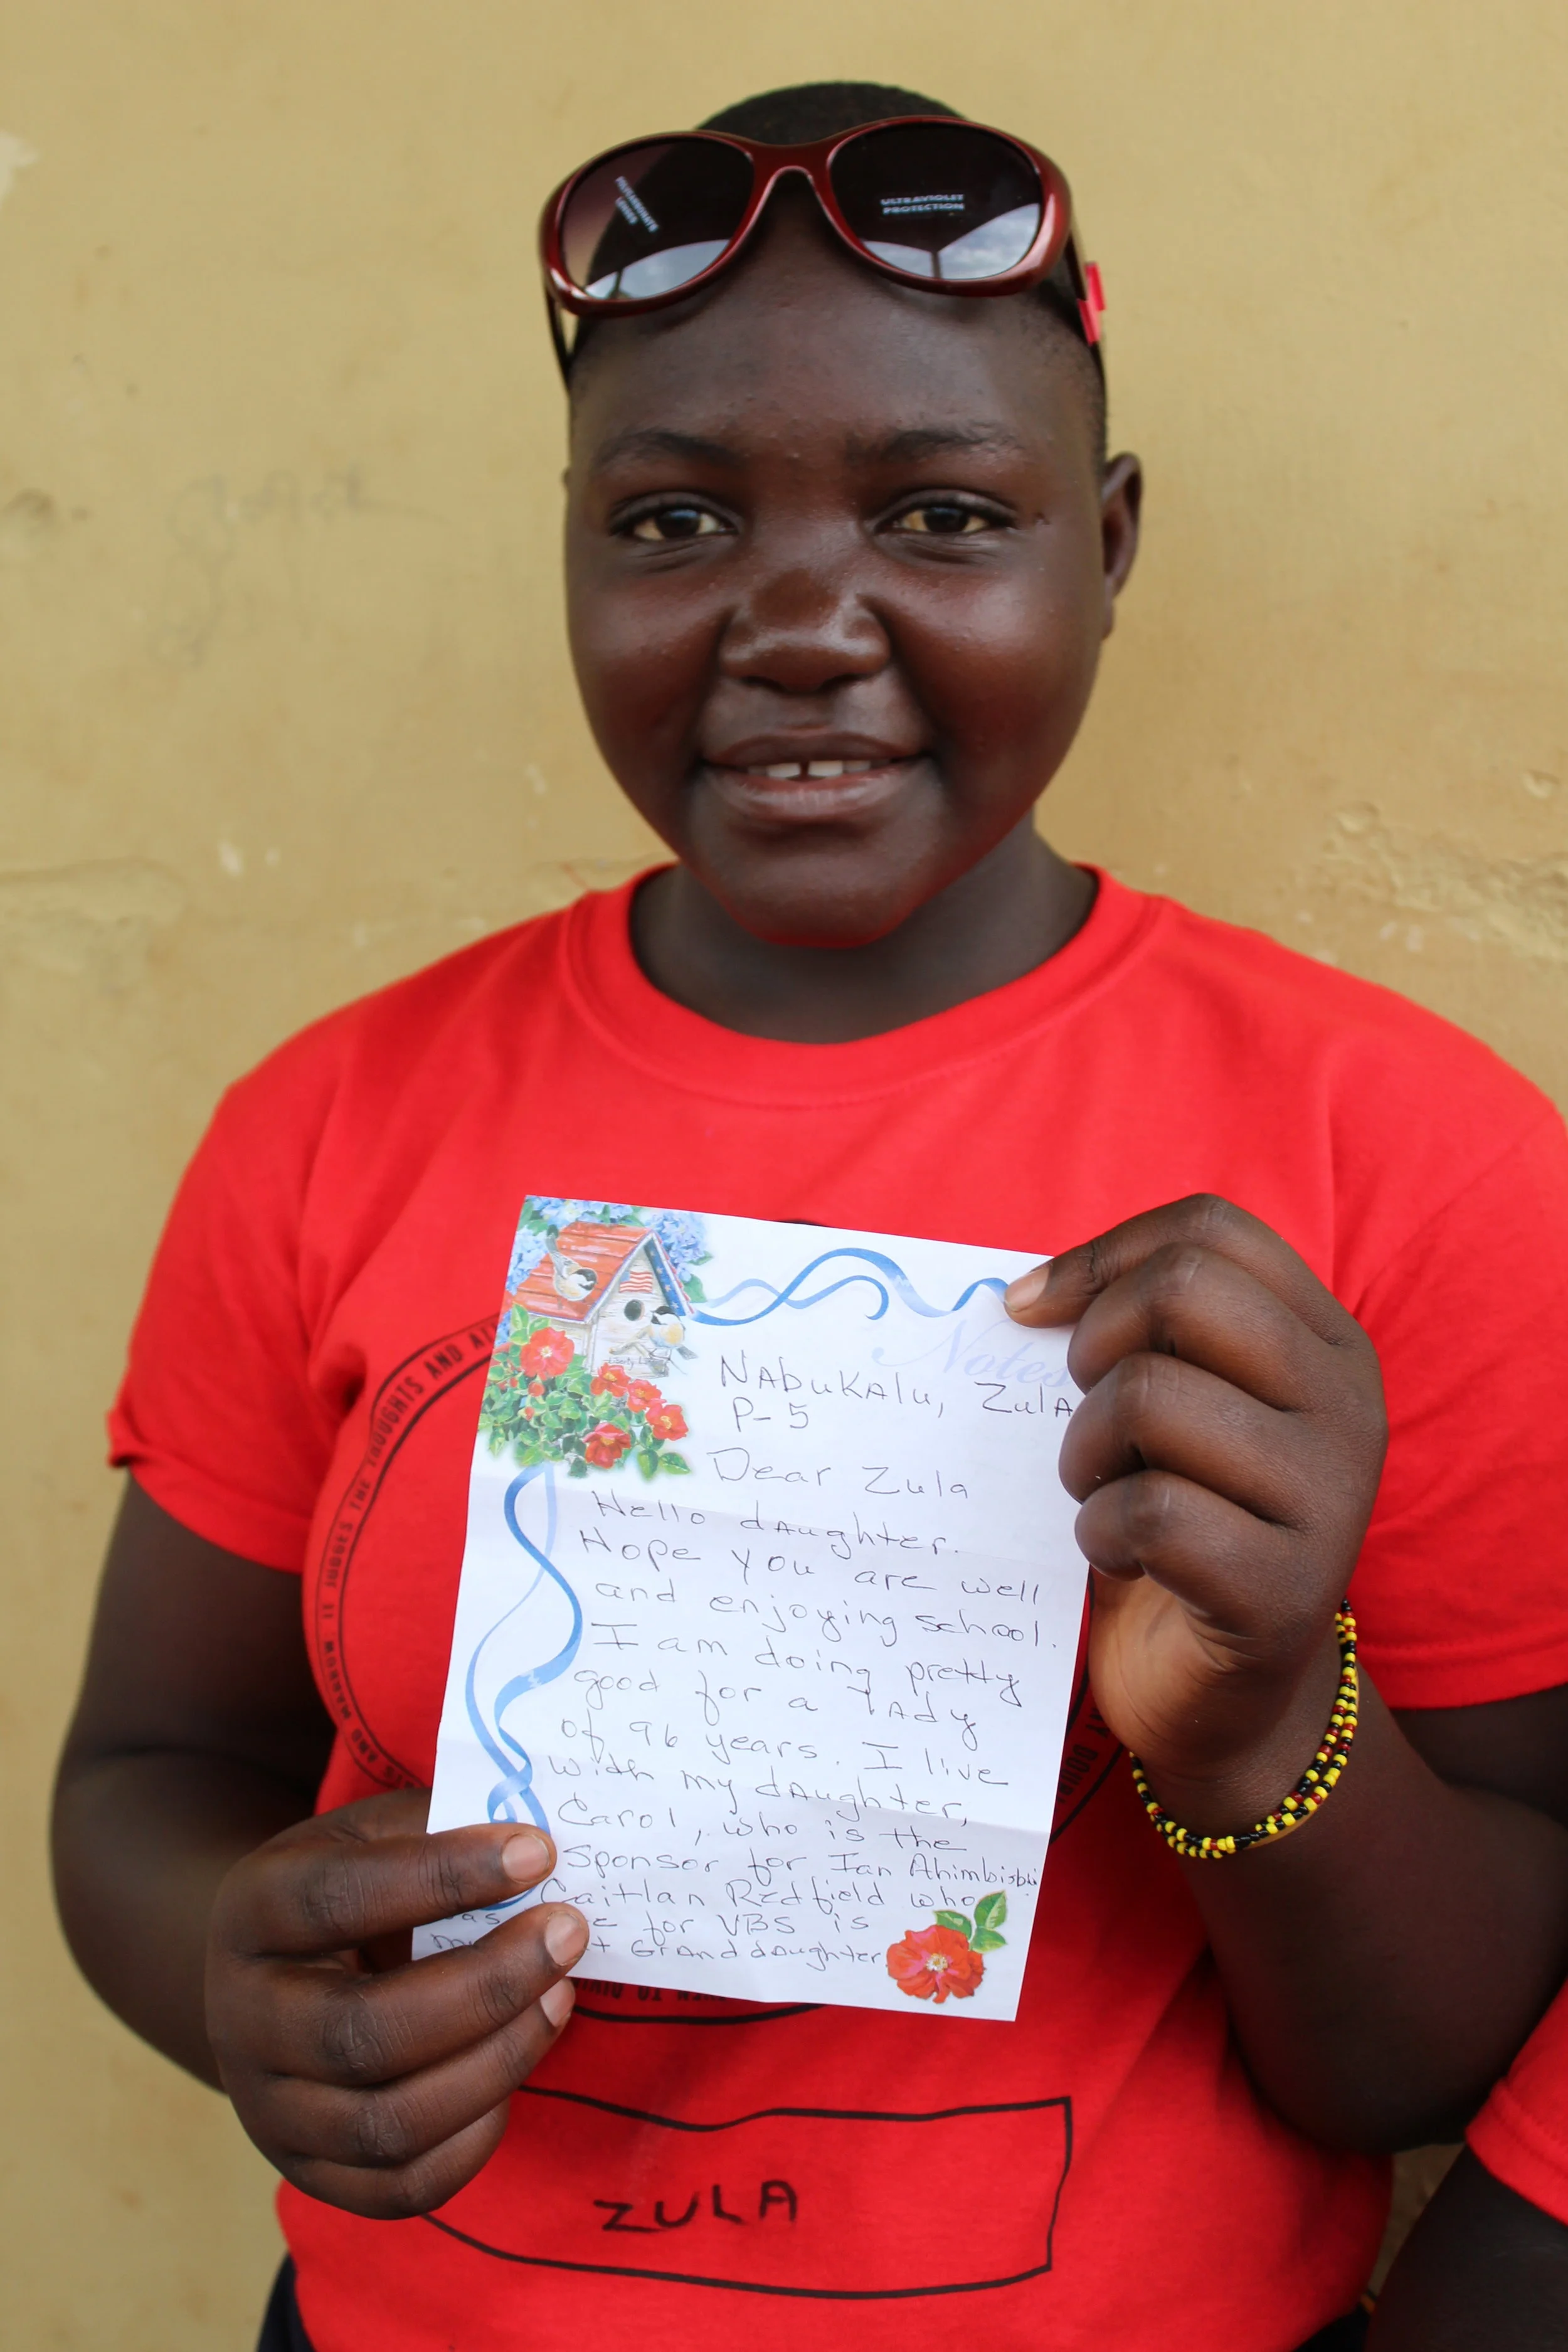 POLYCARBONATE
LENSES
ULTRAVIOLET
PROTECTION
Notes
NAbuKAlu, ZulA
P-5
Dear Zula
Hello dAughter.
Hope you are well
and enjoying school.
I am doing pretty
good for a lAdy
of 96 years. I live
with my dAughter,
Carol, who is the
Sponsor for Ian Ahimbisbi
Caitlan Redfield who
for VBS is
GrAnddAughter
IT JUDGES THE THOUGHTS AND
AND MARROW.
ZULA